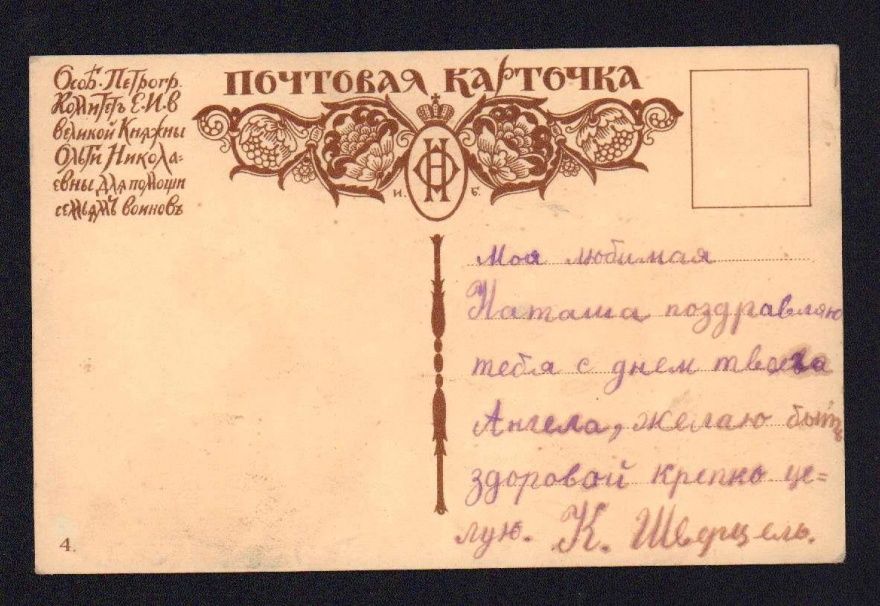 Особ. Петрогр.
Комитетъ Е.И.В
великой Княжны
Ольги Никола=
евны для помощи
семьямъ воиновъ
ПОЧТОВАЯ КАРТОЧКА
И. Б.
Моя любимая
Наташа поздравляю
тебя с днем твоего
Ангела, желаю быть
здоровой крепко це=
лую. К. Шверцель.
4.